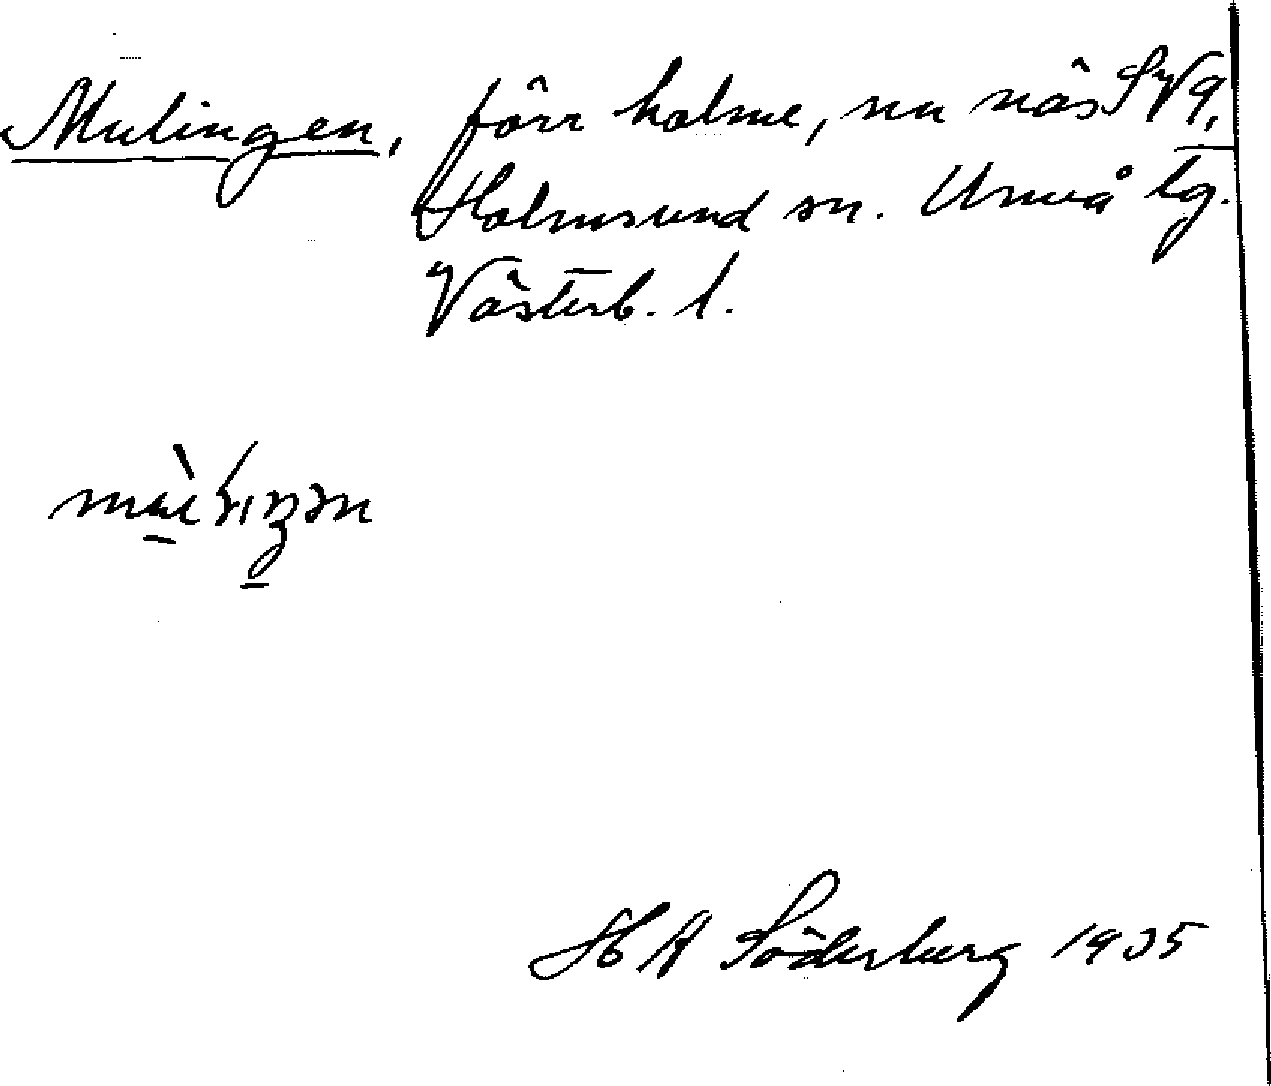 Mulingen, förr holme, nu näs SVg,
Holmsund sn. Umeå tg.
Västerb. l.
H A Söderberg 1935